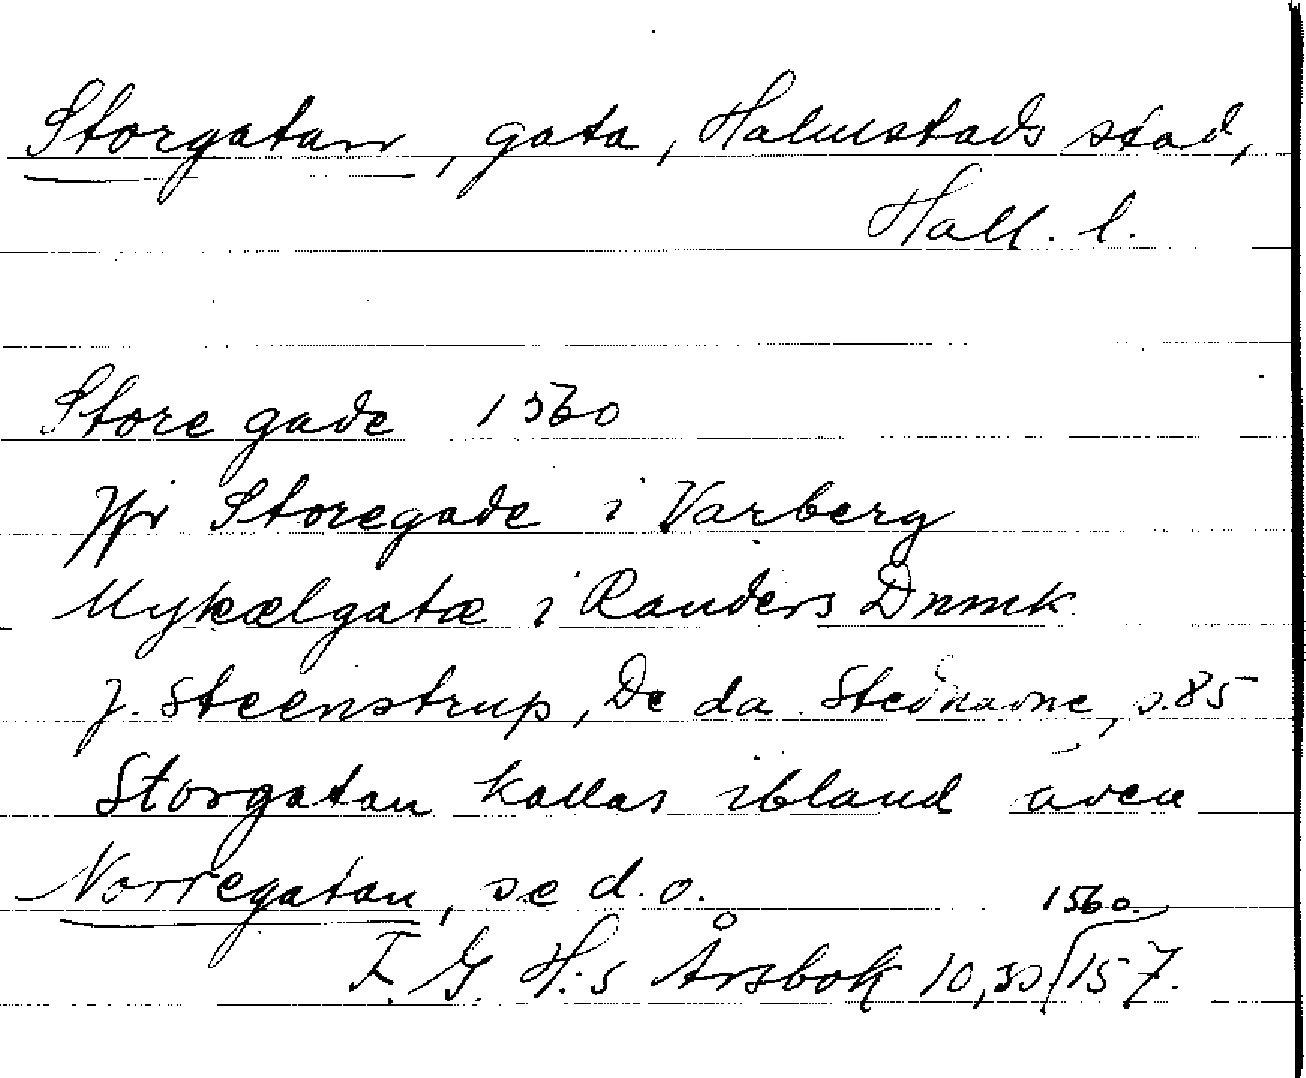 Storgatan, gata, Halmstads stad,
Hall. l.
Store gade 1560
Jfr Storegade i Varberg
Mykælgatæ i Randers Dnmk.
J. Steenstrup, De da. Stednavne, s. 85
Storgatan kallas ibland även
Norregatan, se d. o.
1560
F. G. H:s Årsbok 10, 157.